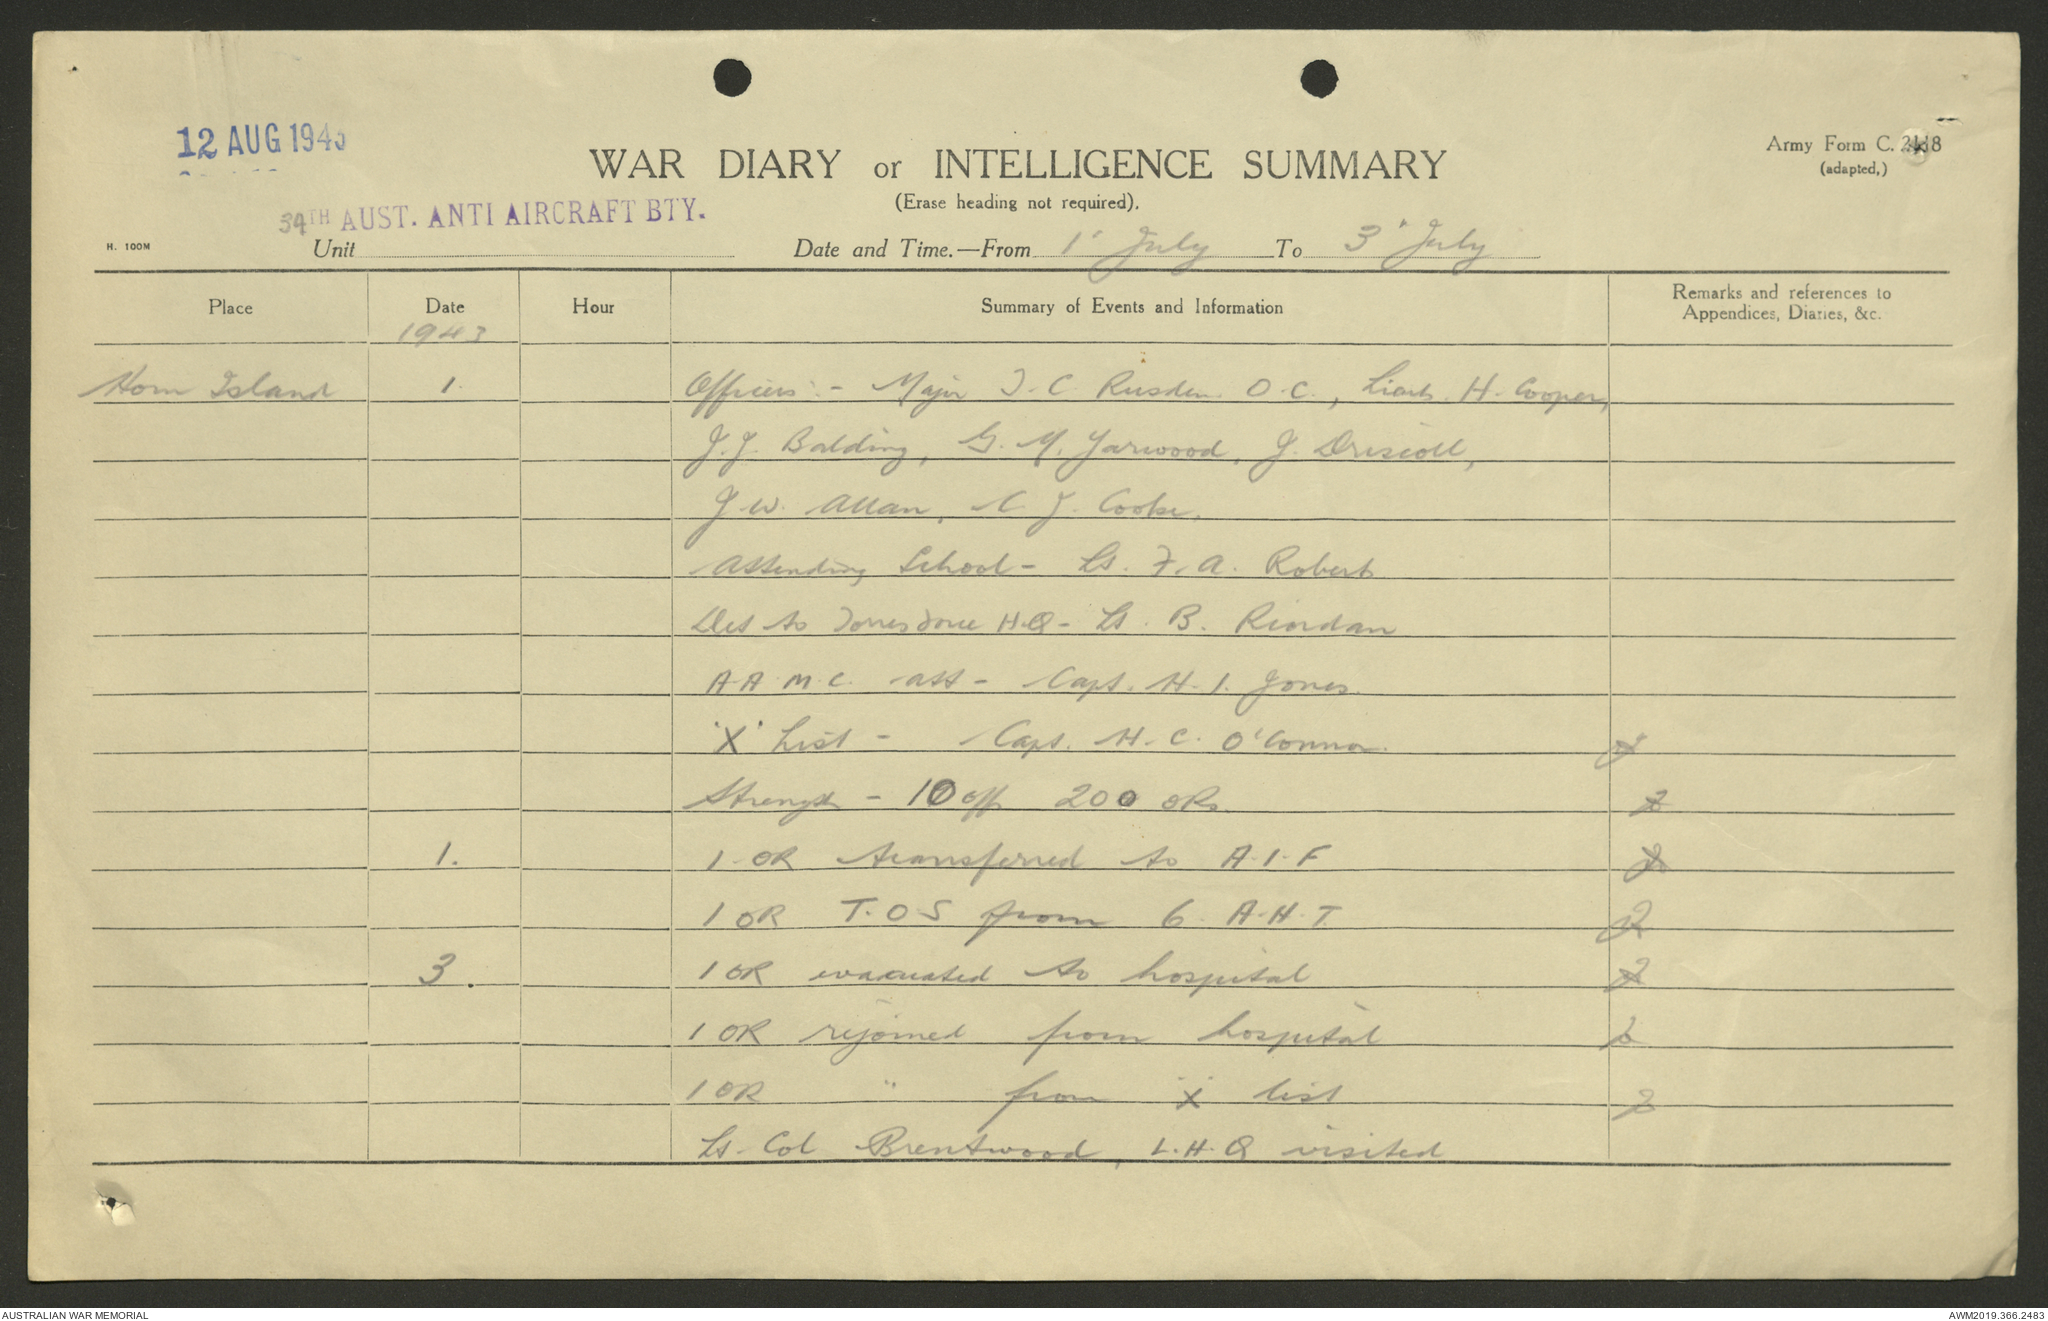 12 AUG 1943
Army Form C. 2118
(adapted,)
WAR DIARY or INTELLIGENCE SUMMARY
(Erase heading not required).
34TH AUST. ANTI AIRCRAFT BTY.
H. 100M
Unit
Date and Time.—From 1' July To 3' July
Place Date Hour Summary of Events and Information Remarks and references to Appendices, Diaries, &c.
1943
Horn Island 1. Officers:- Major T.C. Rusden O.C., Lieuts. H. Cooper,
J.J. Balding, G. M. Yarwood, J. Driscoll,
J W. Allan, C J. Cooke.
Attending School - Lt. F. A. Roberts
Det to Torres Force H.Q - Lt. B. Riordan
A.A.M.C. att - Capt. H. I. Jones.
'X' List - Capt. H. C. O'Connor.
Strength - 10 off 200 ORs.
1. 1 OR transferred to A.I.F
1 OR T.O.S from 6 A.H.T.
3. 1 OR evacuated to hospital
1 OR rejoined from hospital
1 OR " from 'X' list
Lt. Col Brentwood, L.H.Q visited
AUSTRALIAN WAR MEMORIAL
AWM2019.366.2483